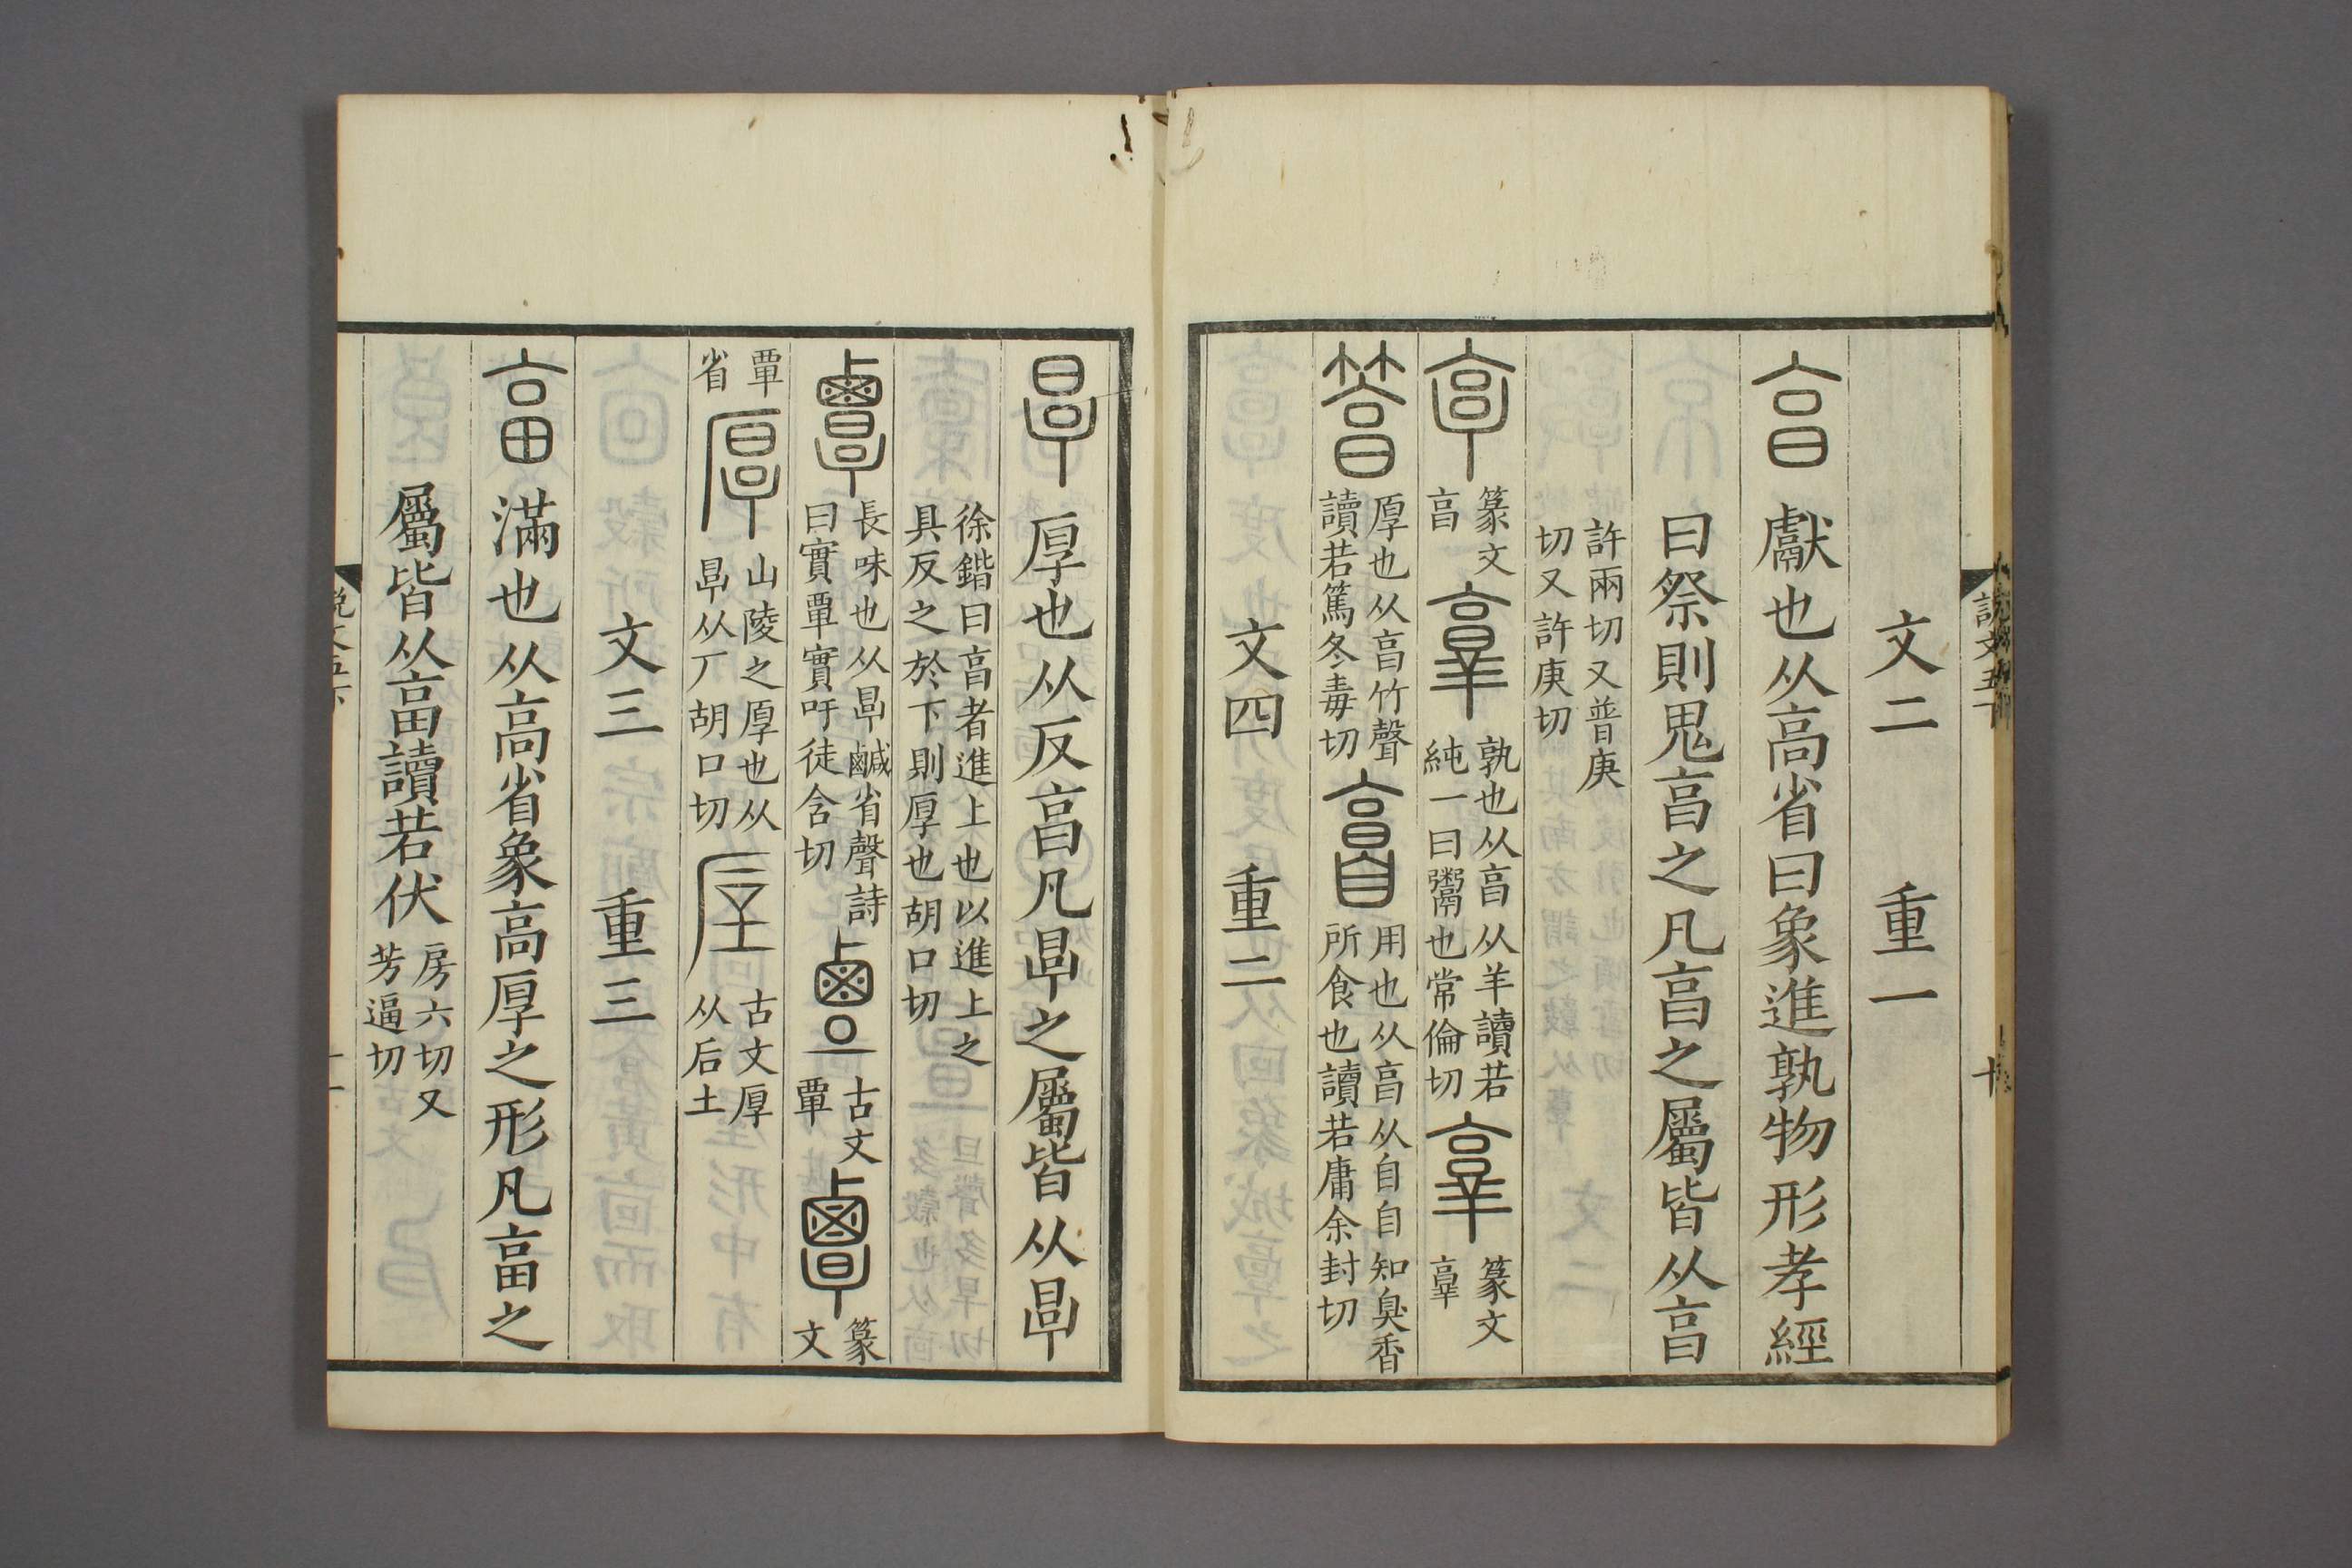 文二　重一
亯 獻也从高省曰象進孰物形孝經
曰祭則鬼亯之凡亯之屬皆从亯
許兩切又普庚
切又許庚切
𦎫 篆文
亯
𦎧 孰也从亯从羊讀若
純一曰鬻也常倫切
𦎫 篆文
𦎧
䈞 厚也从亯竹聲
讀若篤冬毒切
𦤘 用也从亯从自自知臭香
所食也讀若庸余封切
文四　重二
說文五下
十
㫗 厚也从反亯凡㫗之屬皆从㫗
徐鍇曰亯者進上也以進上之
具反之於下則厚也胡口切
覃 長味也从㫗鹹省聲詩
曰實覃實吁徒含切
古文
覃
篆
文
覃
省
厚 山陵之厚也从
㫗从厂胡口切
垕 古文厚
从后土
文三　重三
畗 滿也从高省象高厚之形凡畗之
屬皆从畗讀若伏
房六切又
芳逼切